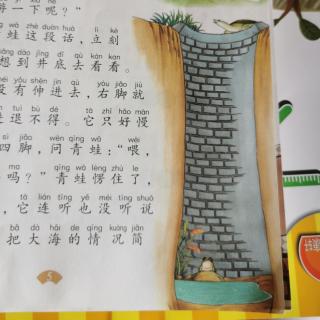 游一下呢？”
wā zhè duàn huà lì kè
蛙这段话，立刻
xiǎng dào jǐng dǐ qù kàn kan
想到井底去看看。
méi yǒu shēn jìn qù yòu jiǎo jiù
没有伸进去，右脚就
tuì bù dé tā zhǐ hǎo màn
进退不得。它只好慢
sì jiǎo wèn qīng wā wèi
四脚，问青蛙：“喂，
ma qīng wā lèng zhù le
吗？”青蛙愣住了，
tā lián tīng yě méi tīng shuō
，它连听也没听说
bǎ dà hǎi de qíng kuàng jiǎn
把大海的情况简
5